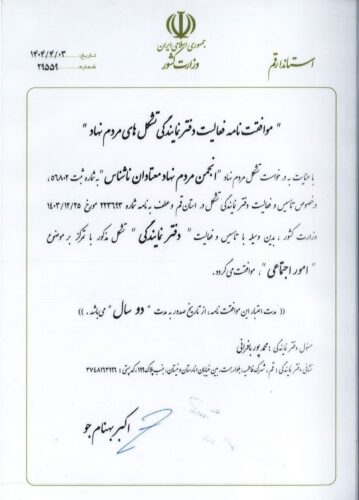 جمهوری اسلامی ایران
وزارت کشور
استاندار قم
تاریخ: ۱۴۰۴/۴/۰۳
شماره: ۲۹۵۵۹
"موافقت نامه فعالیت دفتر نمایندگی تشکل های مردم نهاد"
با عنایت به درخواست تشکل مردم نهاد "انجمن مردم نهاد معتادان ناشناس" به شماره ثبت ۵۶۸۰۲
درخصوص تاسیس و فعالیت دفتر نمایندگی تشکل در استان قم و عطف به نامه شماره ۲۲۳۶۹۳ مورخ ۱۴۰۳/۱۲/۲۵
وزارت کشور، بدین وسیله با تاسیس و فعالیت "دفتر نمایندگی" تشکل مذکور با تمرکز بر موضوع
"امور اجتماعی"، موافقت می گردد.
<< مدت اعتبار این موافقت نامه، از تاریخ صدور به مدت "دو سال" می باشد. >>
مسئول دفتر نمایندگی: محمد پورباقرانی
نشانی دفتر نمایندگی: قم، شهرک فاطمیه، بلوار بعثت، بین خیابان انارستان و نیستان، جنب پلاک ۱۹۹، کدپستی: ۳۷۴۸۱۶۳۹۹۶
اکبر بهنام جو